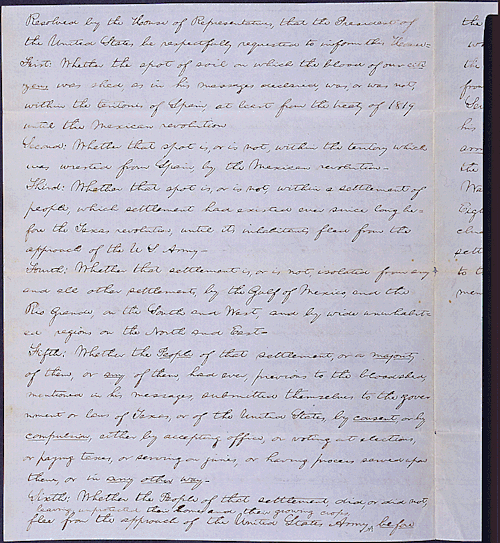 Resolved by the House of Representatives, that the President of
the United States be respectfully requested to inform this House—
First: Whether the spot of soil on which the blood of our citi
zens was shed, as in his messages declared, was, or was not,
within the teritories of Spain, at least from the treaty of 1819
until the Mexican revolution
Second: Whether that spot is, or is not, within the teritory which
was wrested from Spain, by the Mexican revolution—
Third: Whether that spot is, or is not, within a settlement of
people, which settlement had existed ever since long be-
fore the Texas revolution, until its inhabitants fled from the
approach of the U S Army—
Fourth: Whether that settlement is, or is not, isolated from any
and all other settlements, by the Gulf of Mexico, and the
Rio Grande, on the South and West, and by wide uninhabit
ed regions on the North and East—
Fifth: Whether the People of that settlement, or a majority
of them, or any of them, had ever, previous to the bloodshed,
mentioned in his messages, submitted themselves to the govern
ment or laws of Texas, or of the United States, by consent, or by
compulsion, either by accepting office, or voting at elections,
or paying taxes, or serving on juries, or having process served upon
them, or in any other way—
Sixth: Whether the People of that settlement, did, or did not,
leaving unprotected their homes and their growing crops
flee from the approach of the United States Army, before
the
the
from
his
the
to t